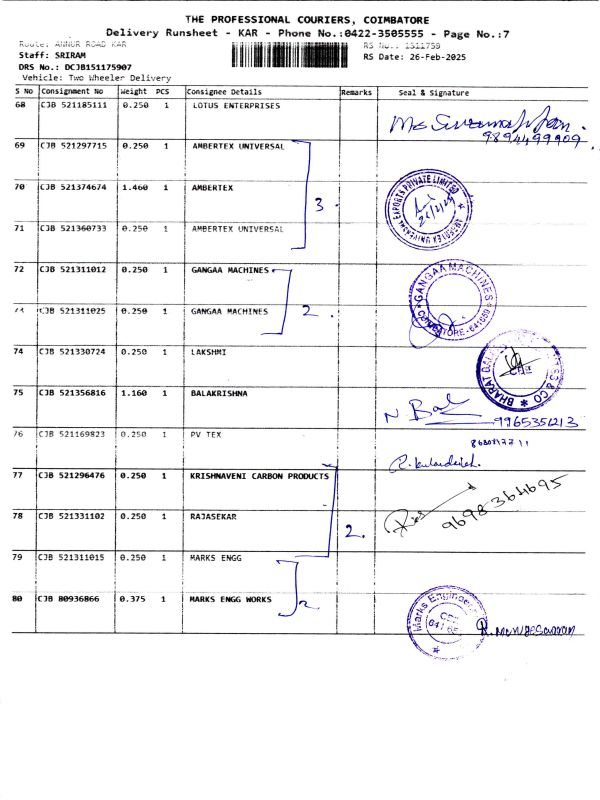 THE PROFESSIONAL COURIERS, COIMBATORE
Delivery Runsheet - KAR - Phone No.:0422-3505555 - Page No.:7
Route: ANNUR ROAD KAR RS No.: 1511759
Staff: SRIRAM RS Date: 26-Feb-2025
DRS No.: DCJB151175907
Vehicle: Two Wheeler Delivery
S No Consignment No Weight PCS Consignee Details Remarks Seal & Signature
68 CJB 521185111 0.250 1 LOTUS ENTERPRISES
9894499909
69 CJB 521297715 0.250 1 AMBERTEX UNIVERSAL
70 CJB 521374674 1.460 1 AMBERTEX
3 AMBERTEX UNIVERSAL EXPORTS PRIVATE LIMITED
71 CJB 521360733 0.250 1 AMBERTEX UNIVERSAL
72 CJB 521311012 0.250 1 GANGAA MACHINES
73 CJB 521311025 0.250 1 GANGAA MACHINES 2. GANGAA MACHINES COIMBATORE
74 CJB 521330724 0.250 1 LAKSHMI
BHARAT & CO
75 CJB 521356816 1.160 1 BALAKRISHNA
N Bal 9965351213
76 CJB 521169823 0.250 1 PV TEX
77 CJB 521296476 0.250 1 KRISHNAVENI CARBON PRODUCTS
9698364695
78 CJB 521331102 0.250 1 RAJASEKAR 2.
79 CJB 521311015 0.250 1 MARKS ENGG
80 CJB 80936866 0.375 1 MARKS ENGG WORKS 2
Marks Engineer